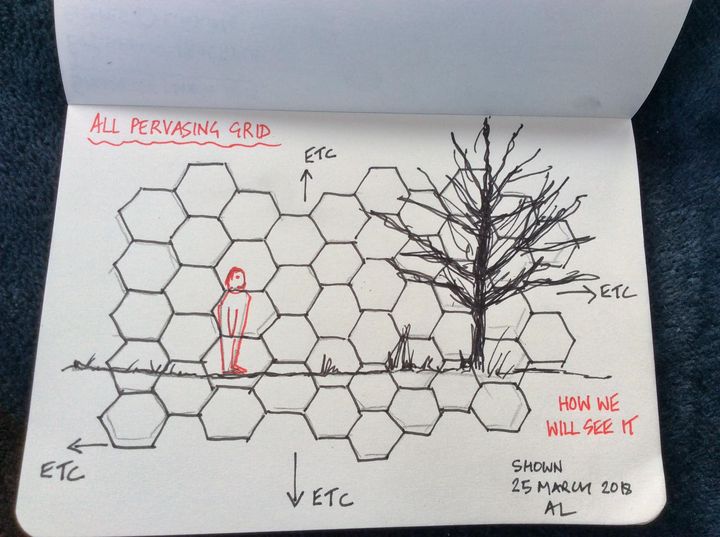 ALL PERVASING GRID
ETC
ETC
HOW WE
WILL SEE IT
ETC
SHOWN
25 MARCH 2018
AL
ETC